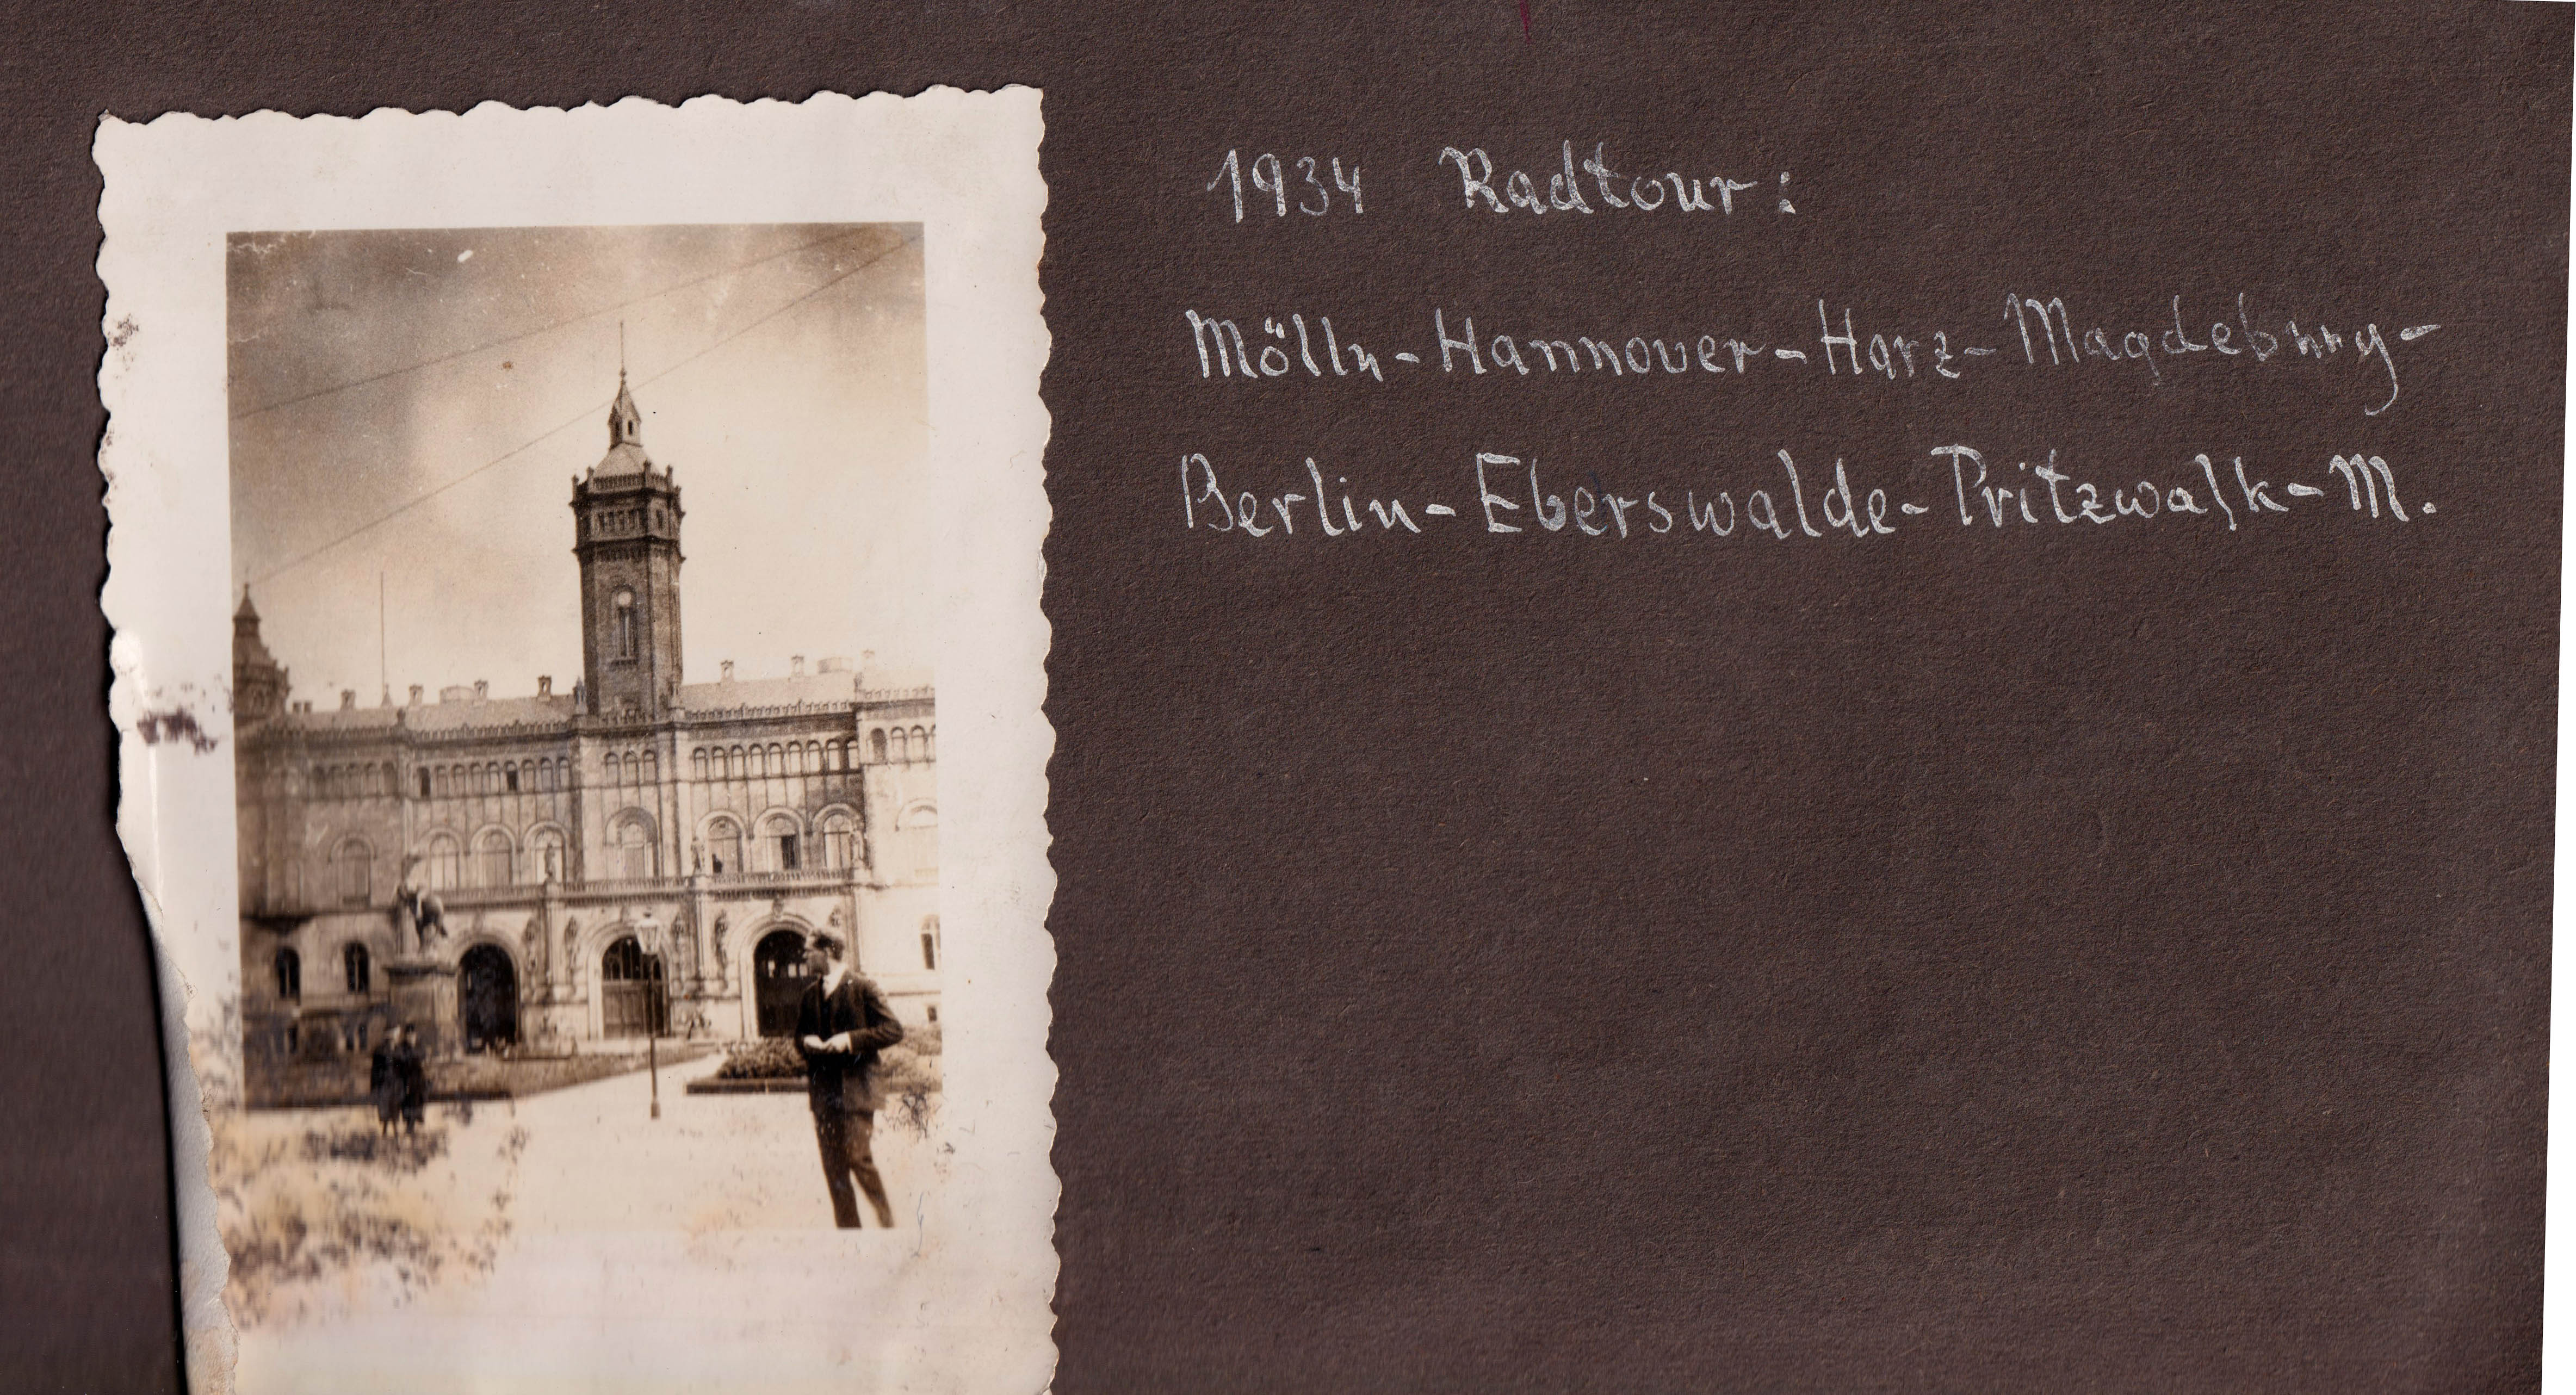 1934 Radtour:
Mölln-Hannover-Harz-Magdeburg-
Berlin-Eberswalde-Pritzwalk-M.